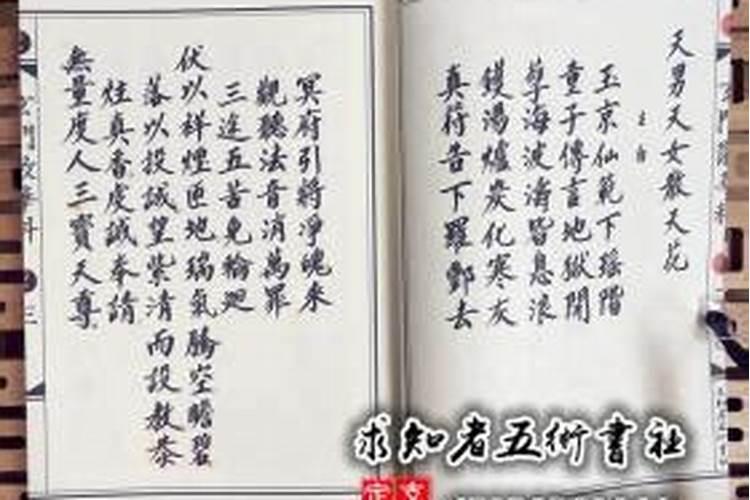 天男天女散天花
主白
玉京仙範下瑶階
童子傳言地獄開
孽海波濤皆息浪
鑊湯爐炭化寒灰
真符告下羅酆去
冥府引將淨魄來
觀聽法音消萬罪
三途五苦免輪迴
伏以祥煙匝地瑞氣騰空瞻碧
落以投誠望紫清而設教恭
炷真香虔誠奉請
無量度人三寶天尊
三
求知者五術書社